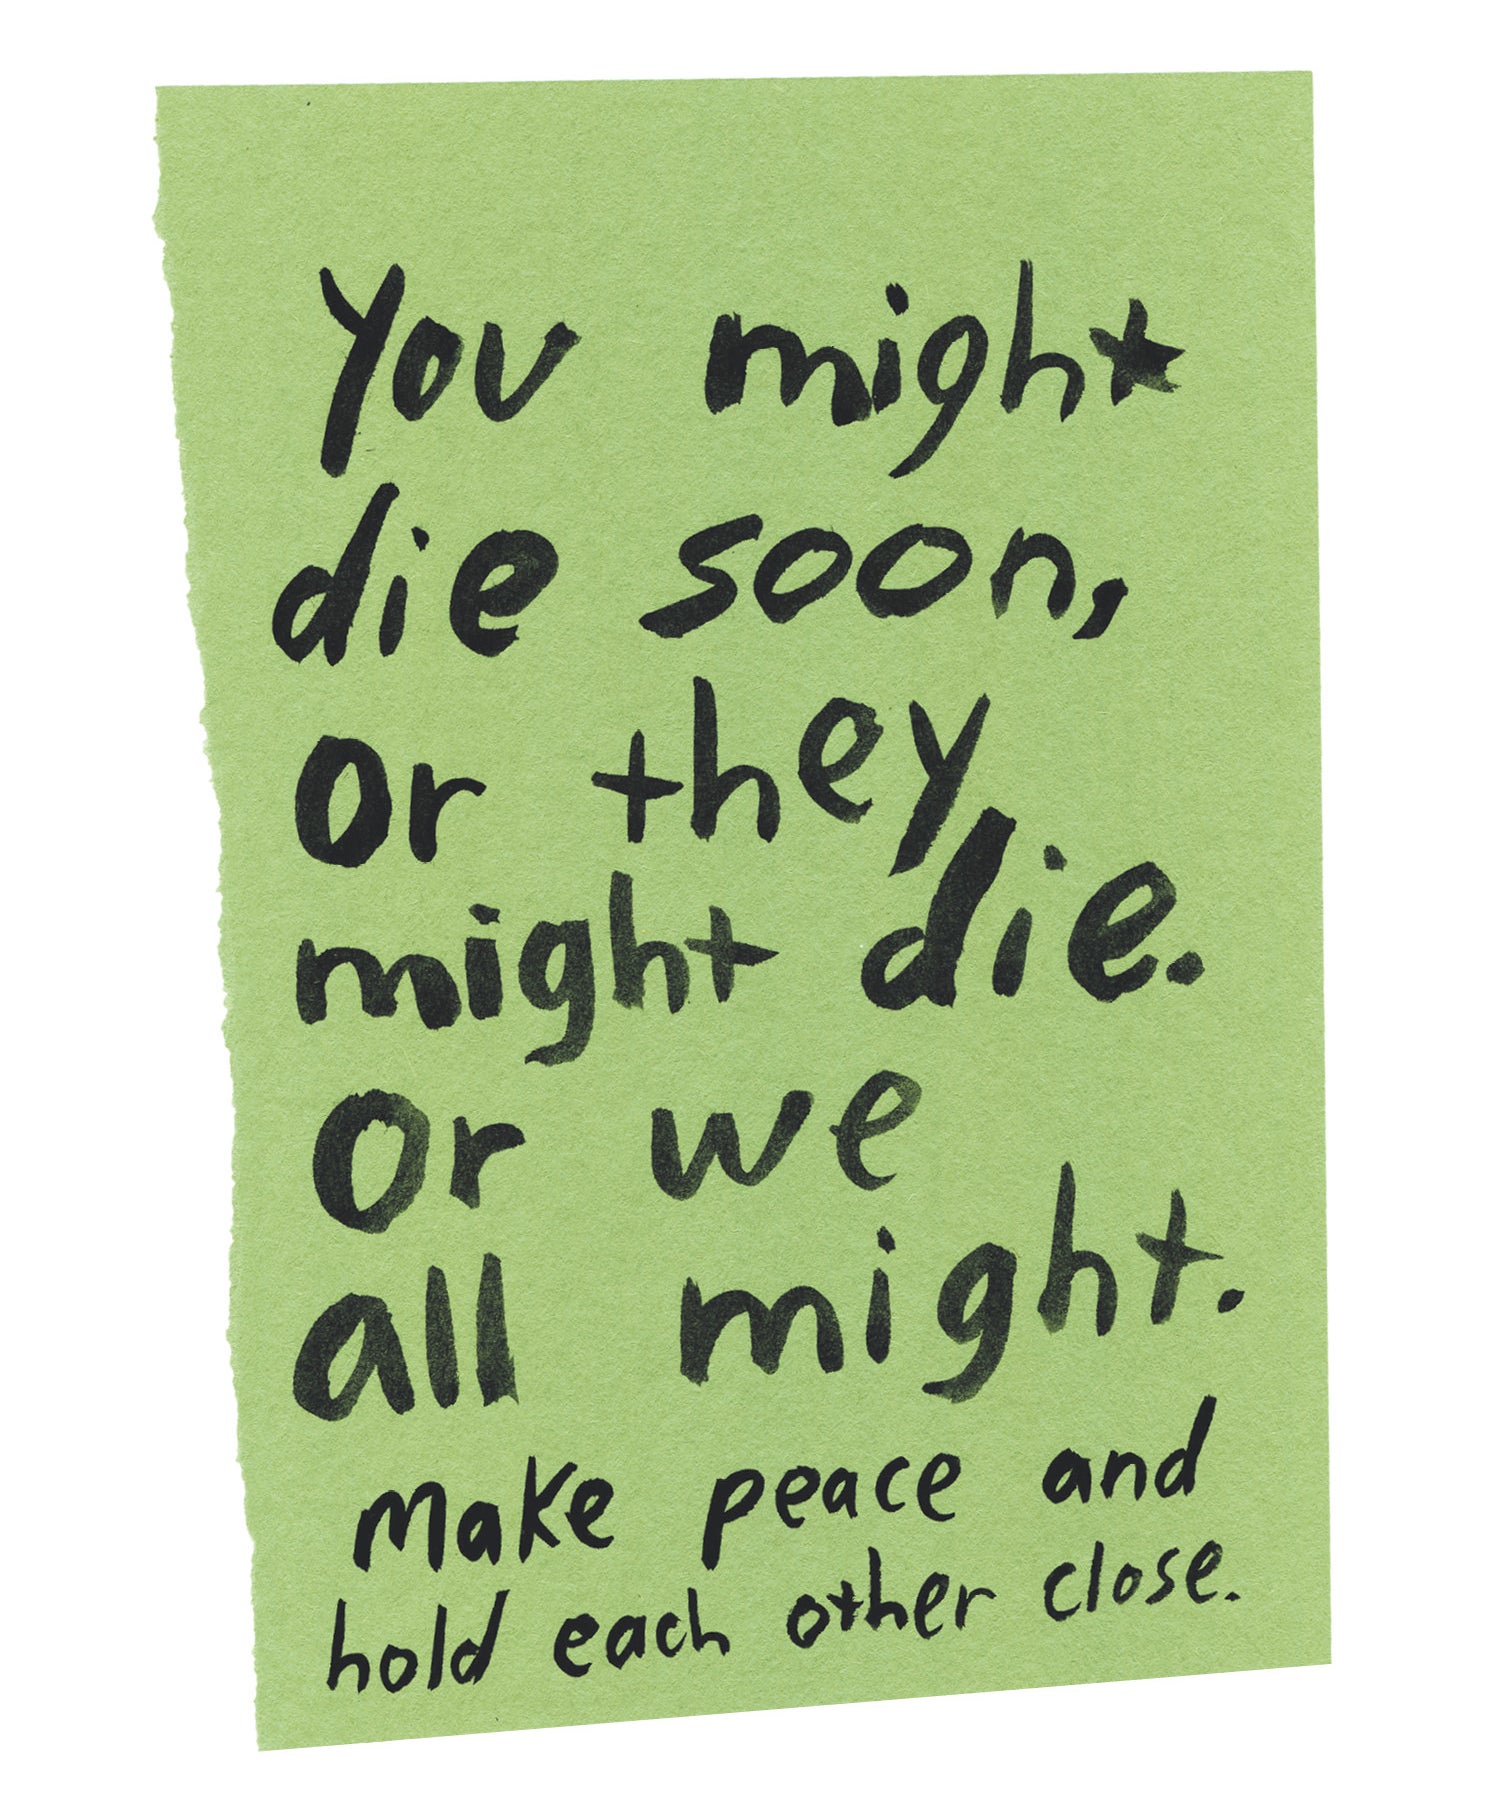 You might
die soon,
Or they
might die.
Or we
all might.
Make peace and
hold each other close.